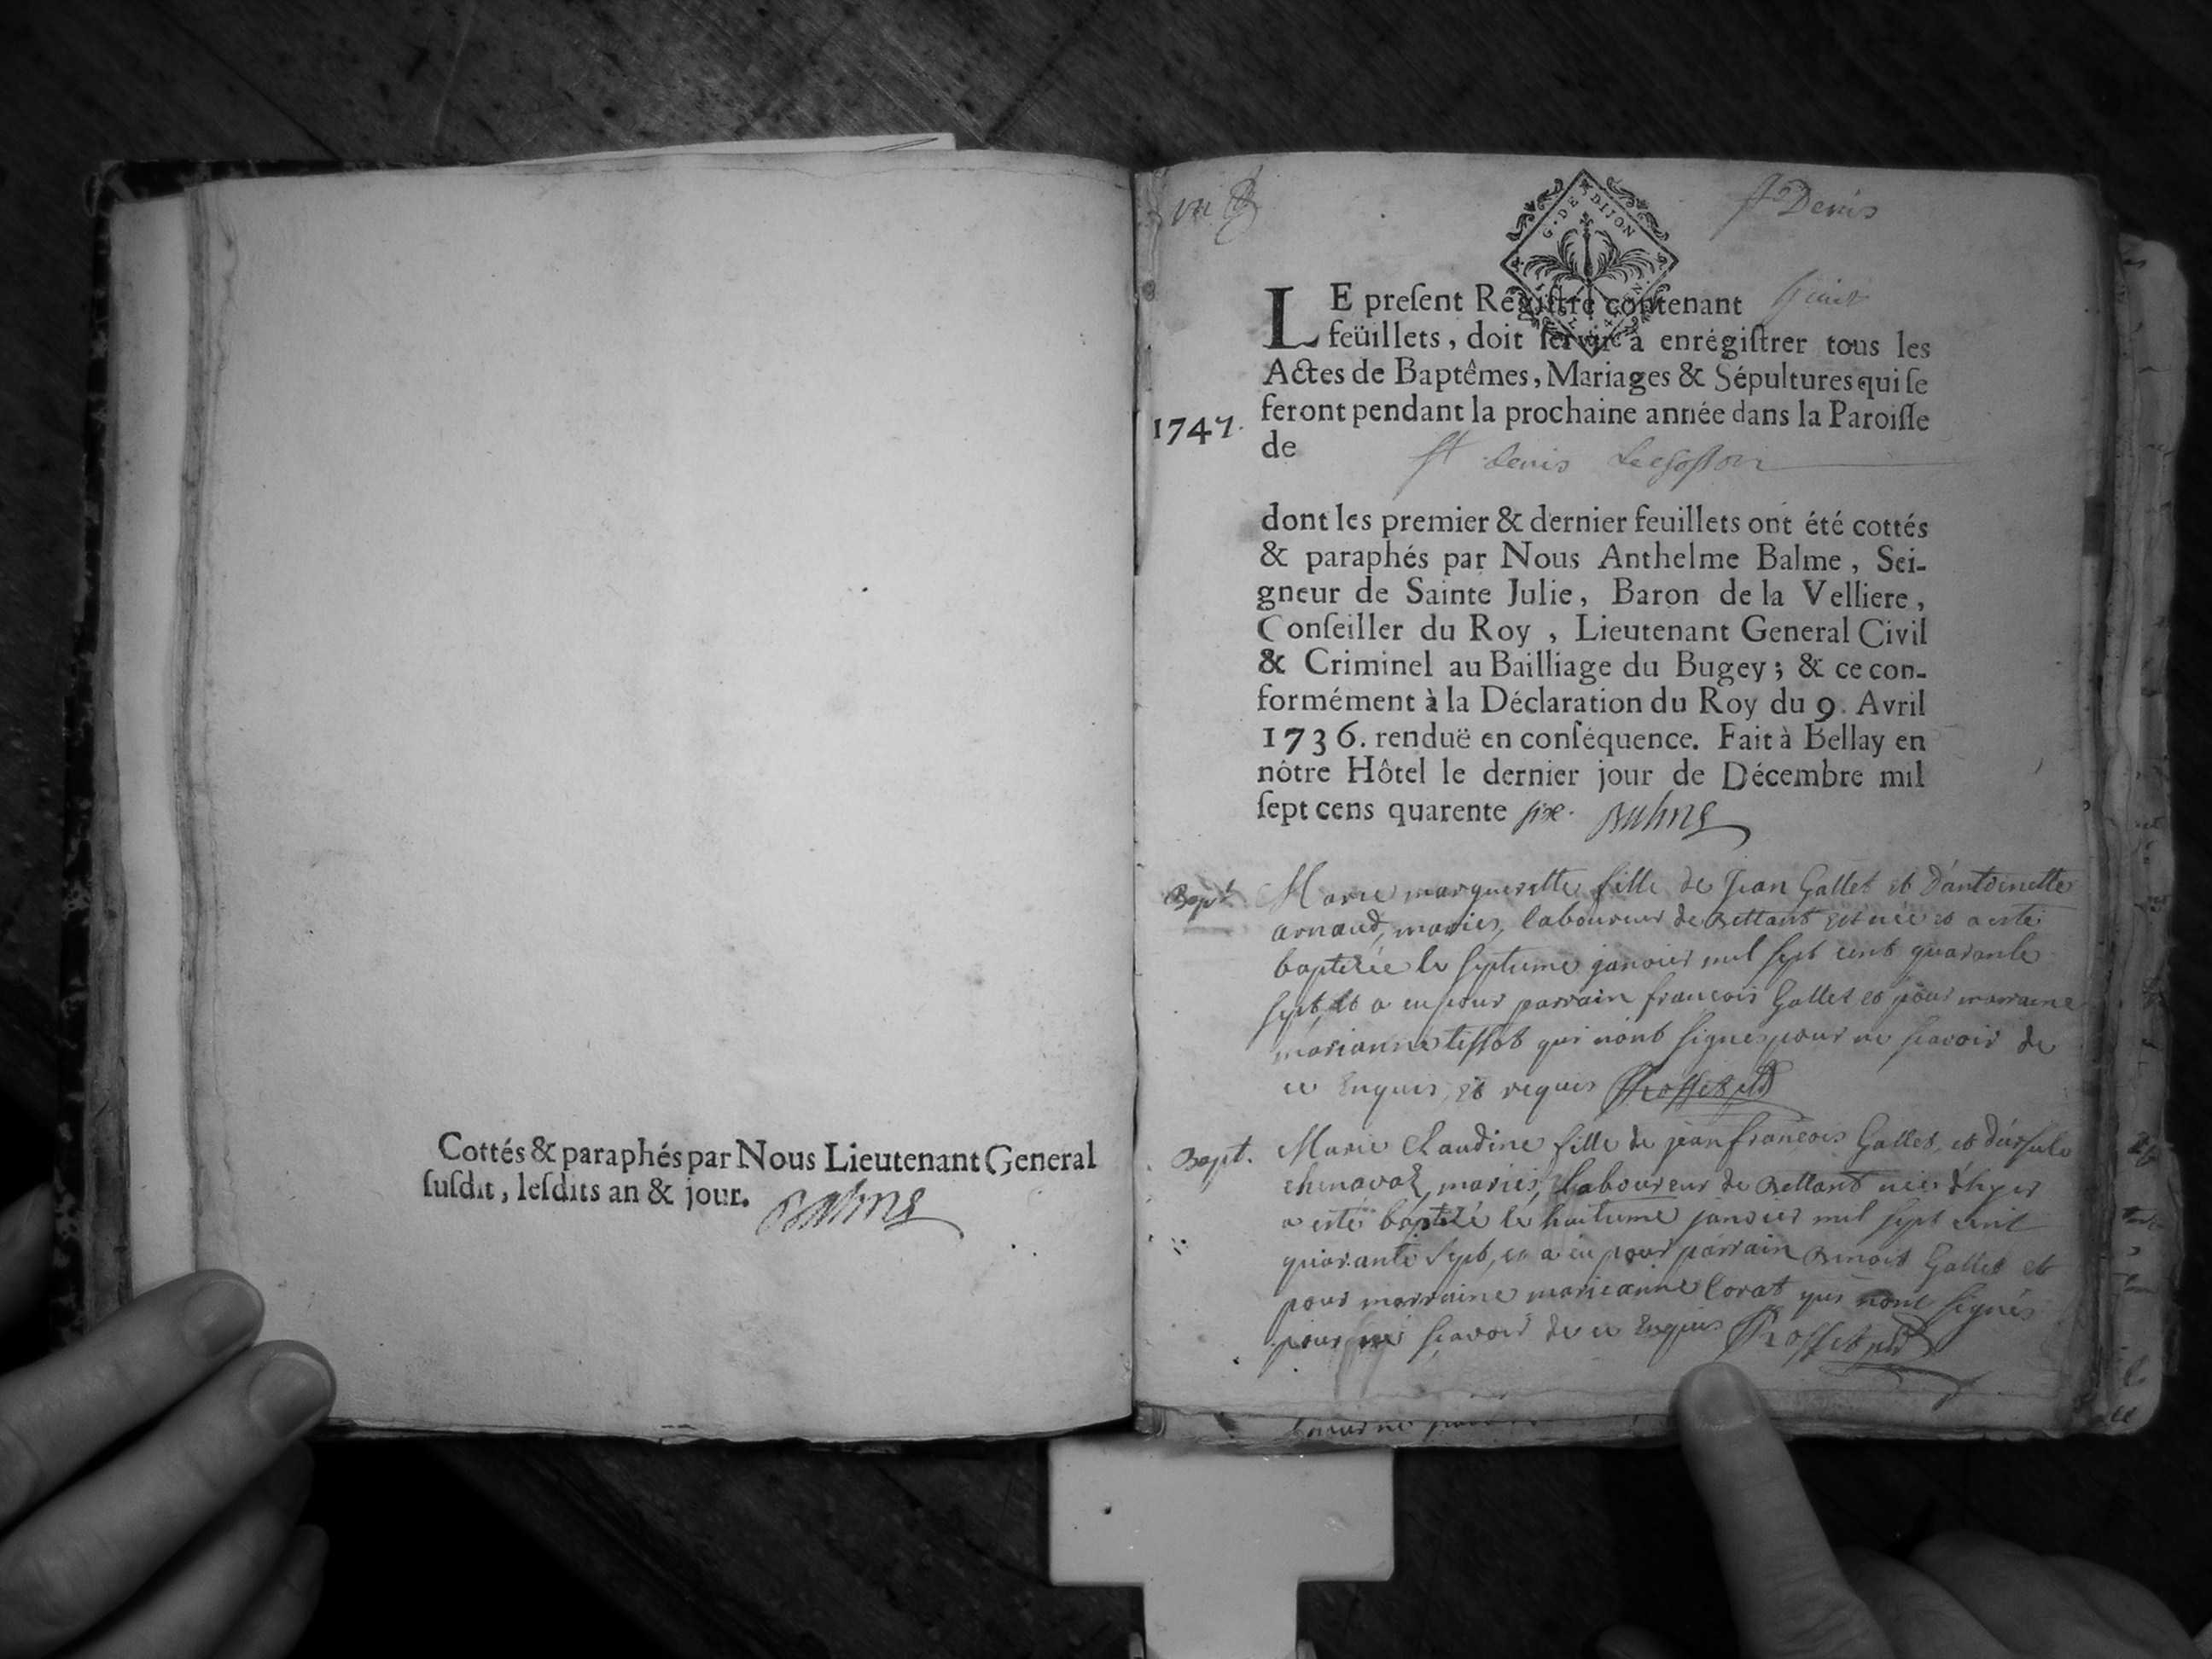 Cottés & paraphés par Nous Lieutenant General
ſuſdit, leſdits an & jour. Balme
St Denis
G. DE DIJON
LE preſent Regiſtre contenant huit
feüillets, doit ſervir à enrégiſtrer tous les
Actes de Baptêmes, Mariages & Sépultures qui ſe
feront pendant la prochaine année dans la Paroiſſe
1747.
de St denis Lechoſſon
dont les premier & dernier feuillets ont été cottés
& paraphés par Nous Anthelme Balme, Sei-
gneur de Sainte Julie, Baron de la Velliere,
Conſeiller du Roy, Lieutenant General Civil
& Criminel au Bailliage du Bugey; & ce con-
formément à la Déclaration du Roy du 9. Avril
1736. renduë en conſéquence. Fait à Bellay en
nôtre Hôtel le dernier jour de Décembre mil
ſept cens quarente ſix. Balme
Bapt. Marie margueritte fille de Jean Gallet et D'antoinette
arnaud, mariés, laboureur de Bettant est née et a esté
baptisée le septieme janvier mil sept cent quarante
sept, et a eu pour parrain francois Gallet et pour marraine
marianne tissot qui n'ont signés pour ne scavoir de
ce Enquis, et requis Rosset
Bapt. Marie Claudine fille de jean francois Gallet, et d'ursule
chenavaz, mariés, laboureur de Bettant née d'hyer
a esté baptisé le huitieme janvier mil sept cent
quarante sept, et a eu pour parrain Benoit Gallet et
pour marraine marieanne Corat qui n'ont signés
pour ne scavoir de ce Enquis Rosset